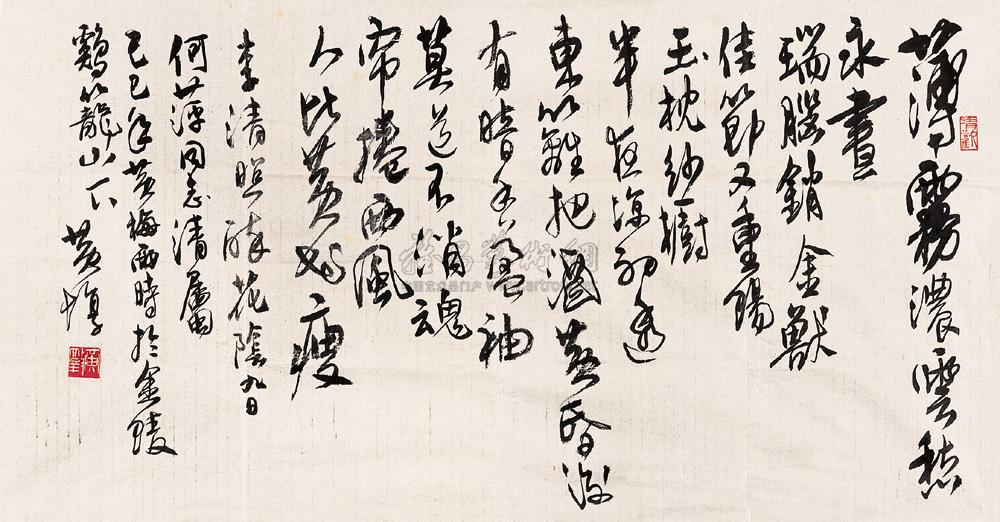 薄霧濃雲愁
永晝
瑞腦銷金獸
佳節又重陽
玉枕紗櫥
半夜涼初透
東籬把酒黃昏後
有暗香盈袖
莫道不消魂
帘捲西風
人比黃花瘦
李清照醉花陰九日
何萍同志清屬
己巳年黃梅雨時於金陵
鷄籠山下 黃惇
雅昌藝術網